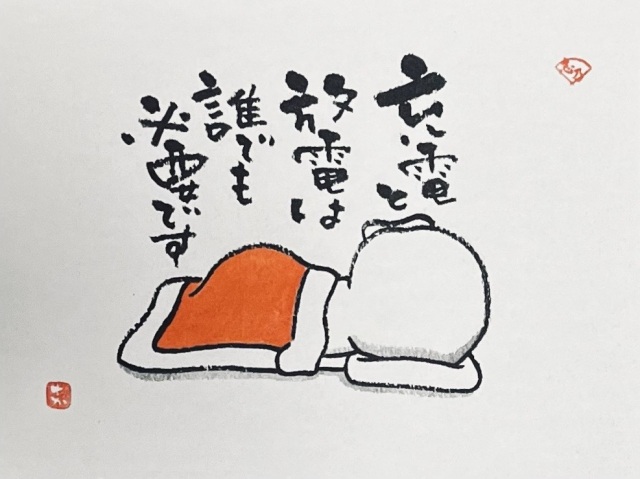 充電と
放電は
誰でも
必要です